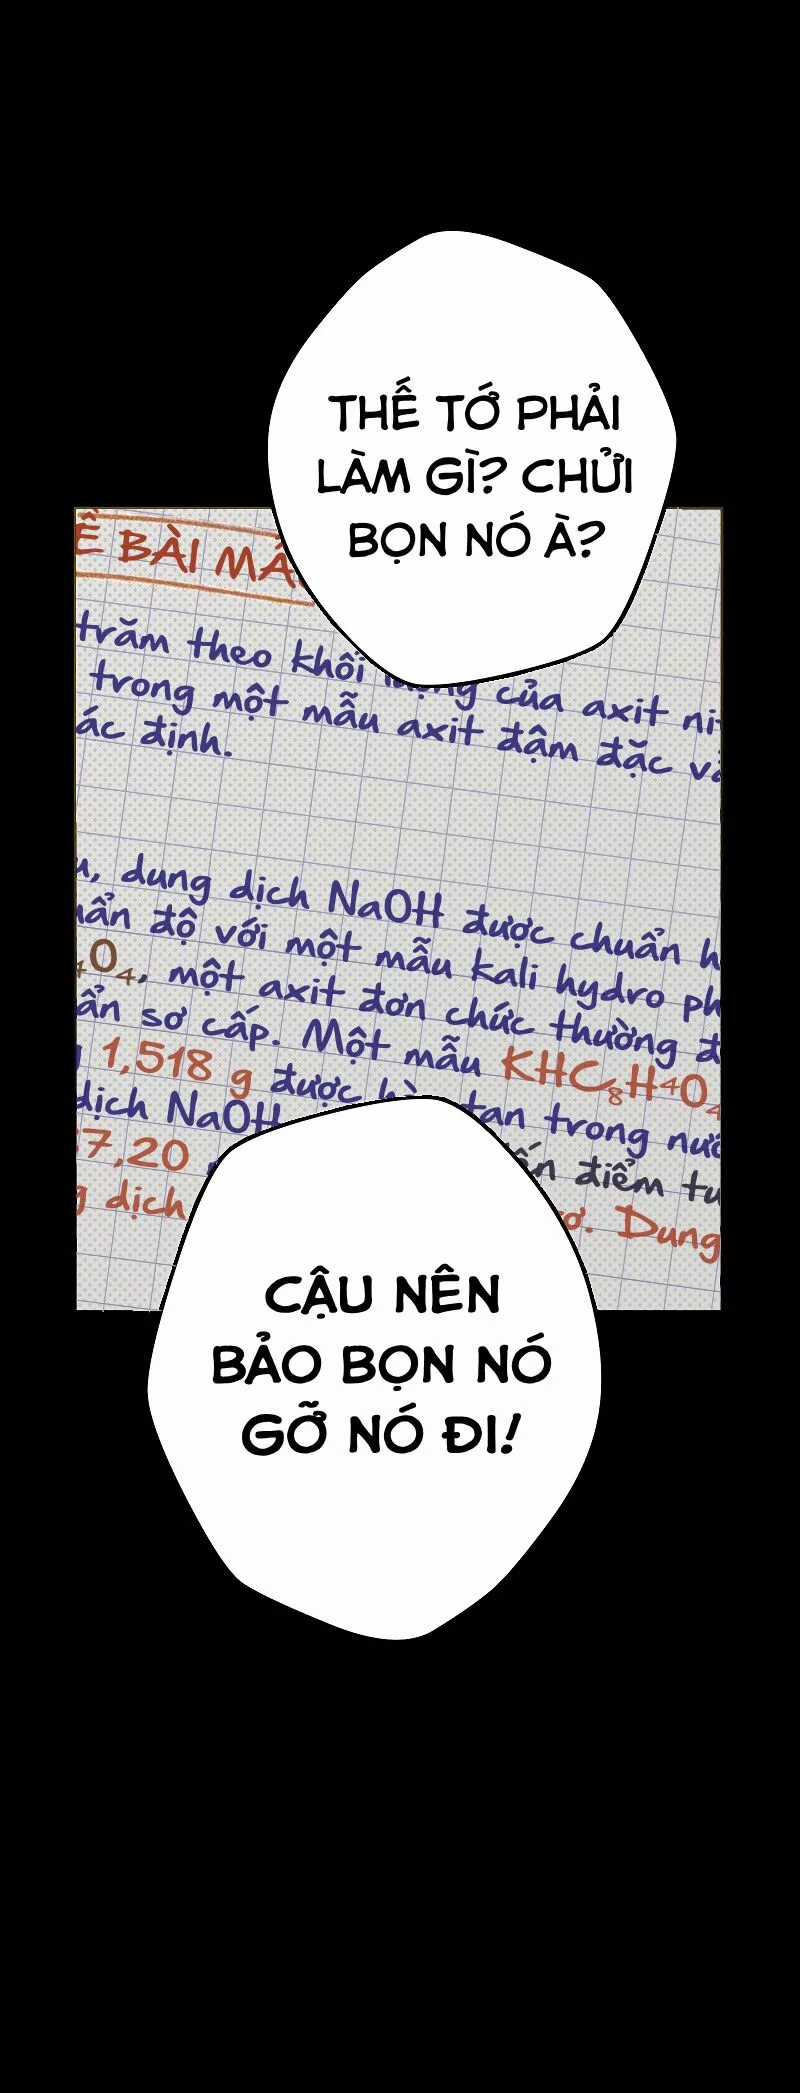 THẾ TỚ PHẢI
LÀM GÌ? CHỬI
BỌN NÓ À?
BÀI
trăm theo khối lượng của axit
trong một mẫu axit đậm đặc
định.
dung dịch NaOH được chuẩn
độ với một mẫu kali hydro
₄O₄, một axit đơn chức thường
sơ cấp. Một mẫu KHC₈H₄O₄
1,518 g được tan trong
dịch NaOH điểm
7,20
dịch Dung
CẬU NÊN
BẢO BỌN NÓ
GỠ NÓ ĐI!